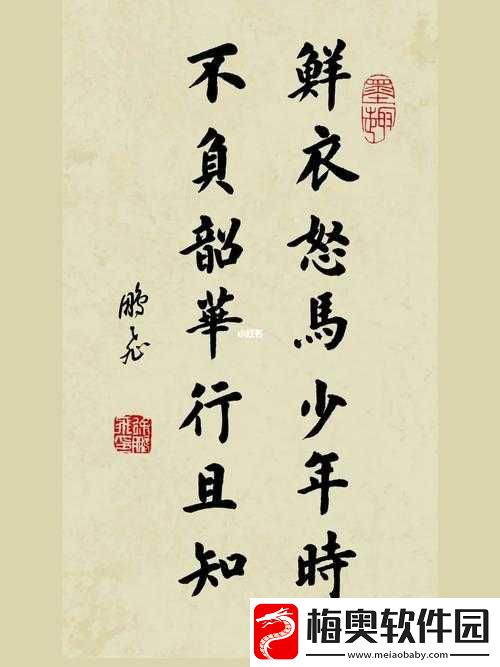 鮮衣怒馬少年時
不負韶華行且知
鵬飛
墨趣
小红书
梅奥软件园
www.meiaobaby.com